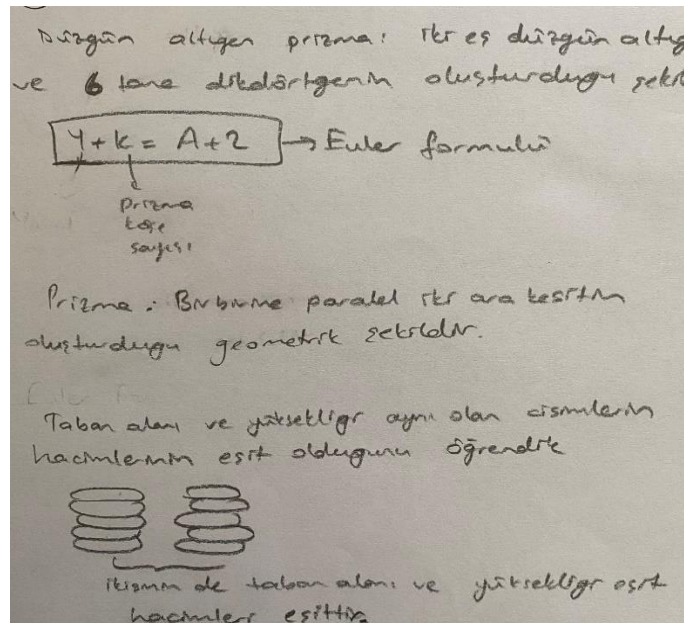 Düzgün altıgen prizma: iki eş düzgün altıg
ve 6 tane dikdörtgenin oluşturduğu şekil
Y+K = A+2 → Euler formülü
Prizma
köşe
sayısı
Prizma: Birbirine paralel iki ara kesitin
oluşturduğu geometrik şekildir.
Taban alanı ve yüksekliği aynı olan cisimlerin
hacimlerinin eşit olduğunu öğrendik
ikisinin de taban alanı ve yüksekliği eşit
hacimleri eşittir.